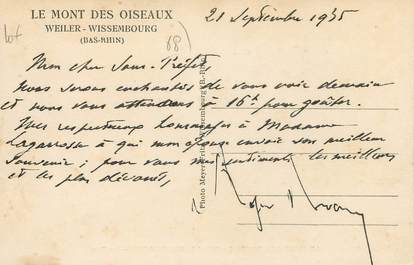 LE MONT DES OISEAUX
WEILER-WISSEMBOURG
(BAS-RHIN)
21 Septembre 1935
68)
Mon cher Sous-Préfet,
Nous serons enchantés de vous voir demain
et nous vous attendons à 16h pour goûter.
Mes respectueux hommages à Madame
Lagarrosse à qui mon épouse envoie son meilleur
souvenir ; pour vous mes sentiments les meilleurs
et les plus dévoués,